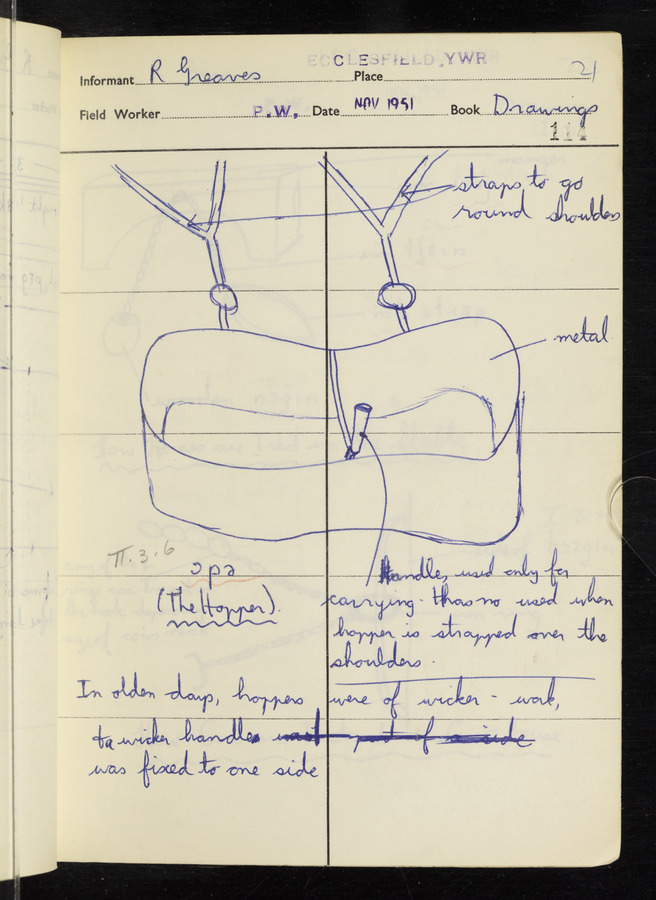 ECCLESFIELD, YWR
Informant R Greaves Place 21
Field Worker P.W. Date NOV 1951 Book Drawings
114
straps to go
round shoulders
metal
II.3.6
ɔpə
(The Hopper).
Handle, used only for
carrying. It has no used when
hopper is strapped over the
shoulders.
In olden days, hoppers were of wicker-work,
wicker handle part of side
was fixed to one side